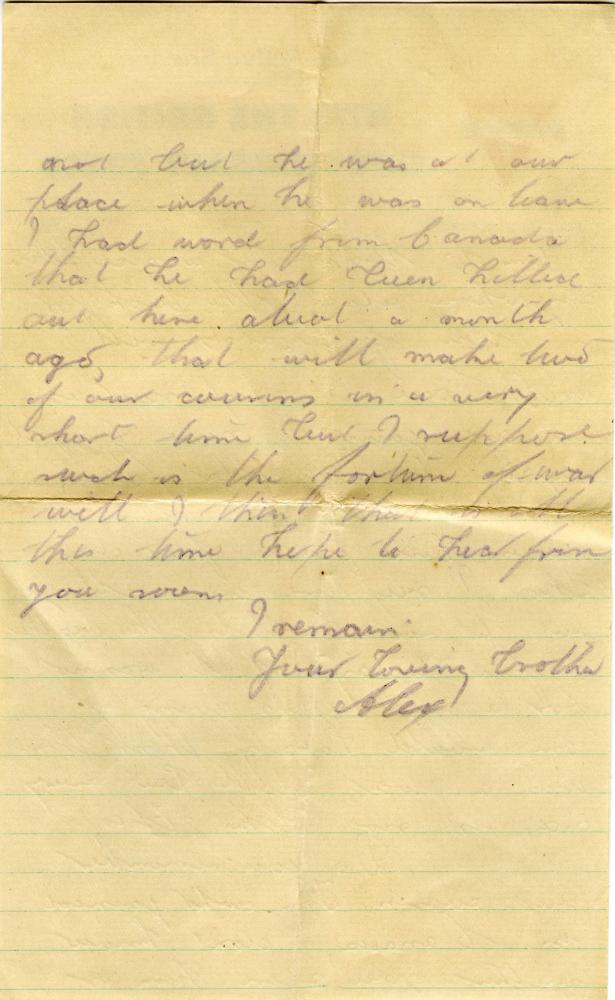 not but he was at our
place when he was on leave
I had word from Canada
that he had been killed
out here about a month
ago, that will make two
of our cousins in a very
short time but I suppose
such is the fortune of war
will I think that is all
this time hope to hear from
you soon.
I remain
Your loving brother
Alex